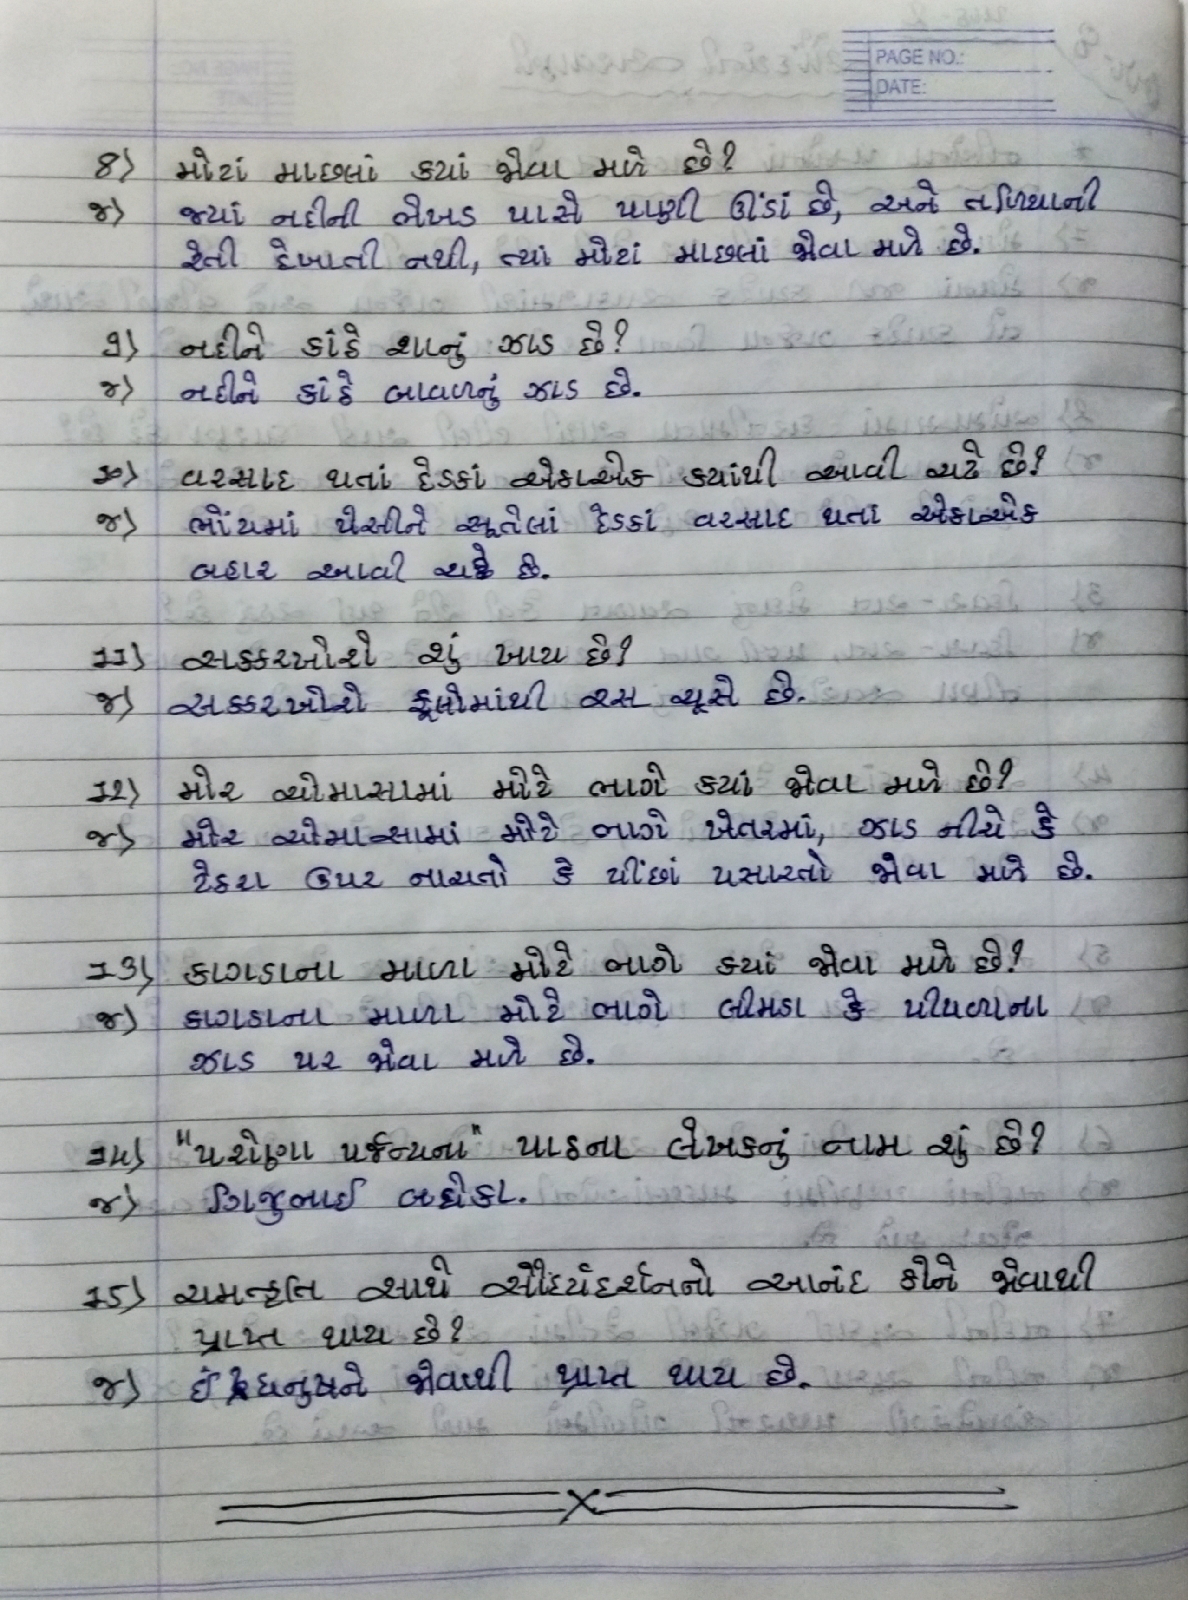 PAGE NO.:
DATE:
8) મોટાં માછલાં ક્યાં જોવા મળે છે?
જ) જ્યાં નદીની ભેખડ પાસે પાણી ઊંડાં છે, અને તળિયાની
રેતી દેખાતી નથી, ત્યાં મોટાં માછલાં જોવા મળે છે.
9) નદીને કાંઠે શાનું ઝાડ છે?
જ) નદીને કાંઠે બાવળનું ઝાડ છે.
૧૦) વરસાદ થતાં દેડકાં એકાએક ક્યાંથી આવી ચઢે છે?
જ) ભોંયમાં પેસીને સૂતેલાં દેડકાં વરસાદ થતા એકાએક
બહાર આવી ચઢે છે.
૧૧) સક્કરખોરો શું ખાય છે?
જ) સક્કરખોરો ફૂલોમાંથી રસ ચૂસે છે.
૧૨) મોર ચોમાસામાં મોટે ભાગે ક્યાં જોવા મળે છે?
જ) મોર ચોમાસામાં મોટે ભાગે ખેતરમાં, ઝાડ નીચે કે
ટેકરા ઉપર નાચતો કે પીંછાં પસારતો જોવા મળે છે.
૧૩) કાગડાના માળા મોટે ભાગે ક્યાં જોવા મળે છે?
જ) કાગડાના માળા મોટે ભાગે લીમડા કે પીપળાના
ઝાડ પર જોવા મળે છે.
૧૪) "પરોણા પર્જન્યના" પાઠના લેખકનું નામ શું છે?
જ) ગિજુભાઈ બધેકા.
૧૫) ચમત્કૃતિ સાથે સૌંદર્યદર્શનનો આનંદ કોને જોવાથી
પ્રાપ્ત થાય છે?
જ) ઈંદ્રધનુષને જોવાથી પ્રાપ્ત થાય છે.